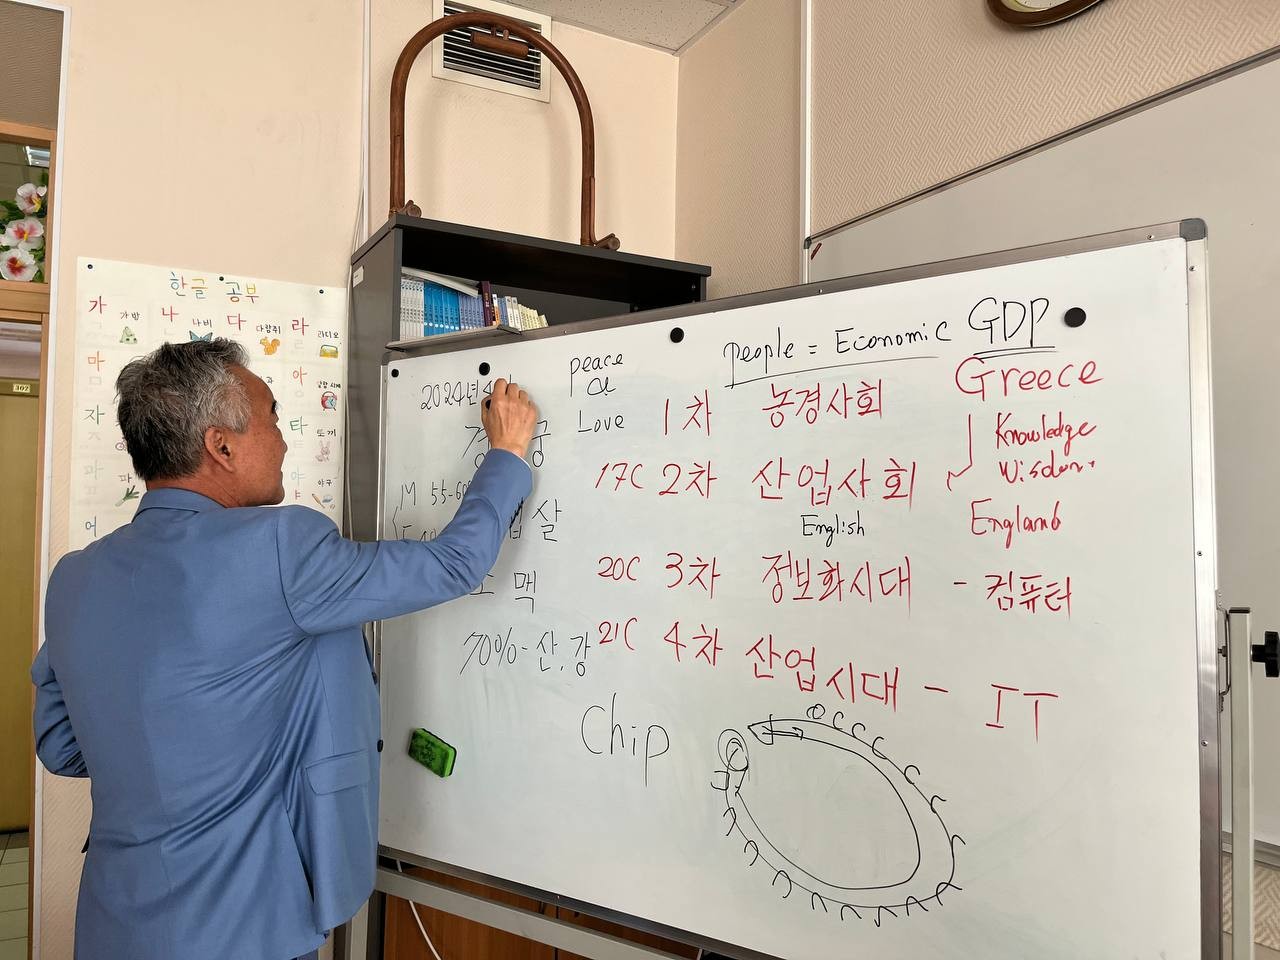 한글 공부
가 가방 나 나비 다 다람쥐 라 라디오
마
아
자
타 토끼
파
야 야구
어
302
2024년 4
peace
&
Love
M 55-60
살
맥
70%-산.강
people = Economic GDP
1차 농경사회 Greece
Knowledge
Wisdom
17C 2차 산업사회
English
England
20C 3차 정보화시대 - 컴퓨터
21C 4차 산업시대 - IT
Chip